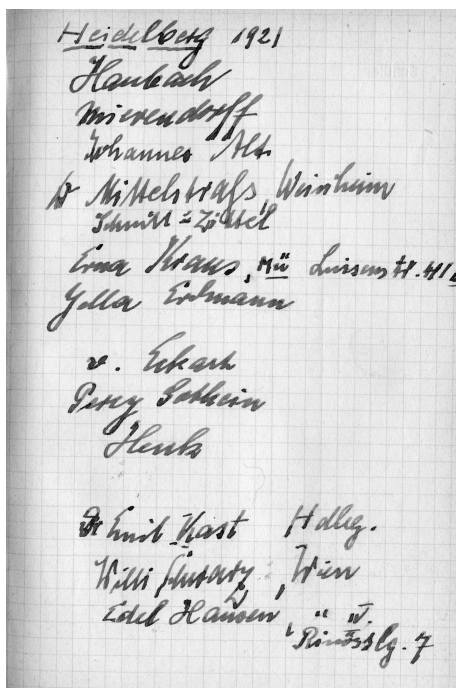 Heidelberg 1921
Haubach
Mierendorff
Johannes Alt
Dr Mittelstraß, Weinheim
Schmitt =
Erna Kraus, Mü Luisenstr. 41
Yella Erdmann
v. Eckart
Percy Gothein
Henk
Dr Emil Kast Hdlbg.
Willi Wien
Edel Hansen, " IV.
7